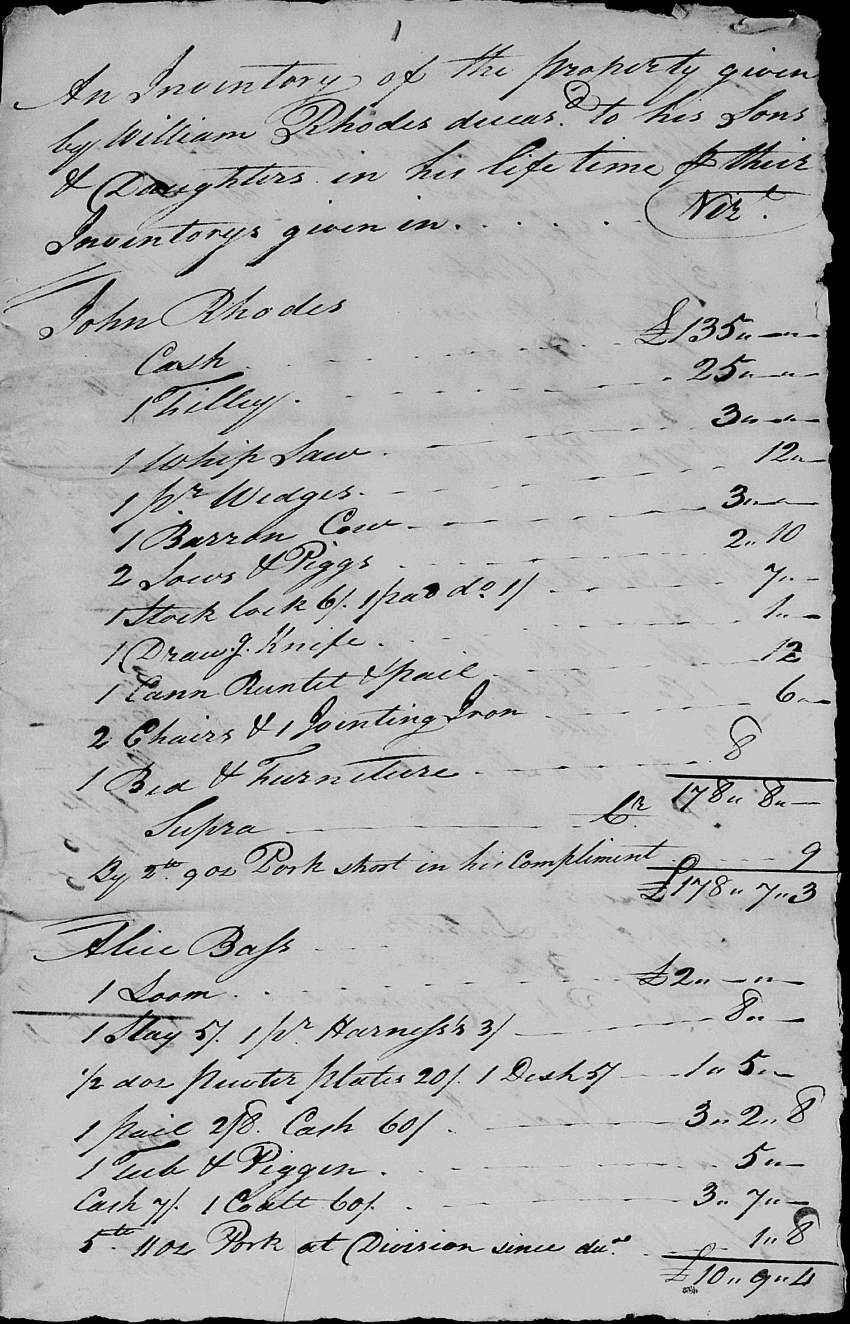 1
An Inventory of the property given
by William Rhodes deceas.d to his Sons
& Daughters in his life time pr their
Inventorys given in . . . . . Viz.t
John Rhodes
Cash £135 " — " —
1 Filley. 25 " — " —
1 Whip Saw 3 " — " —
1 p.r Wedges. 12 " —
1 Barron Cow 3 " — " —
2 Sows & Piggs 2 " 10
1 Stock lock 6/. 1 pad d.o 1/ 7 " —
1 Draw.g Knife 1 " —
1 Cann Runlet & pail 12
2 Chairs & 1 Jointing Iron 6 " —
1 Bed & Furniture 8
Supra C.r 178 " 8 " —
By 2 lb. 9 oz Pork short in his Compliment 9
£178 " 7 " 3
Alice Bass
1 Loom £2 " — " —
1 Slay 5/. 1 p.r Harness's 3/ 8 " —
1/2 doz pewter plates 20/. 1 Dish 5/ 1 " 5 " —
1 pail 2/8. Cash 60/ 3 " 2 " 8
1 Tub & Piggin 5 " —
Cash 7/. 1 Coalt 60/. 3 " 7 " —
5 lb. 11 oz Pork at Division since 1 " 8
£10 " 9 " 4